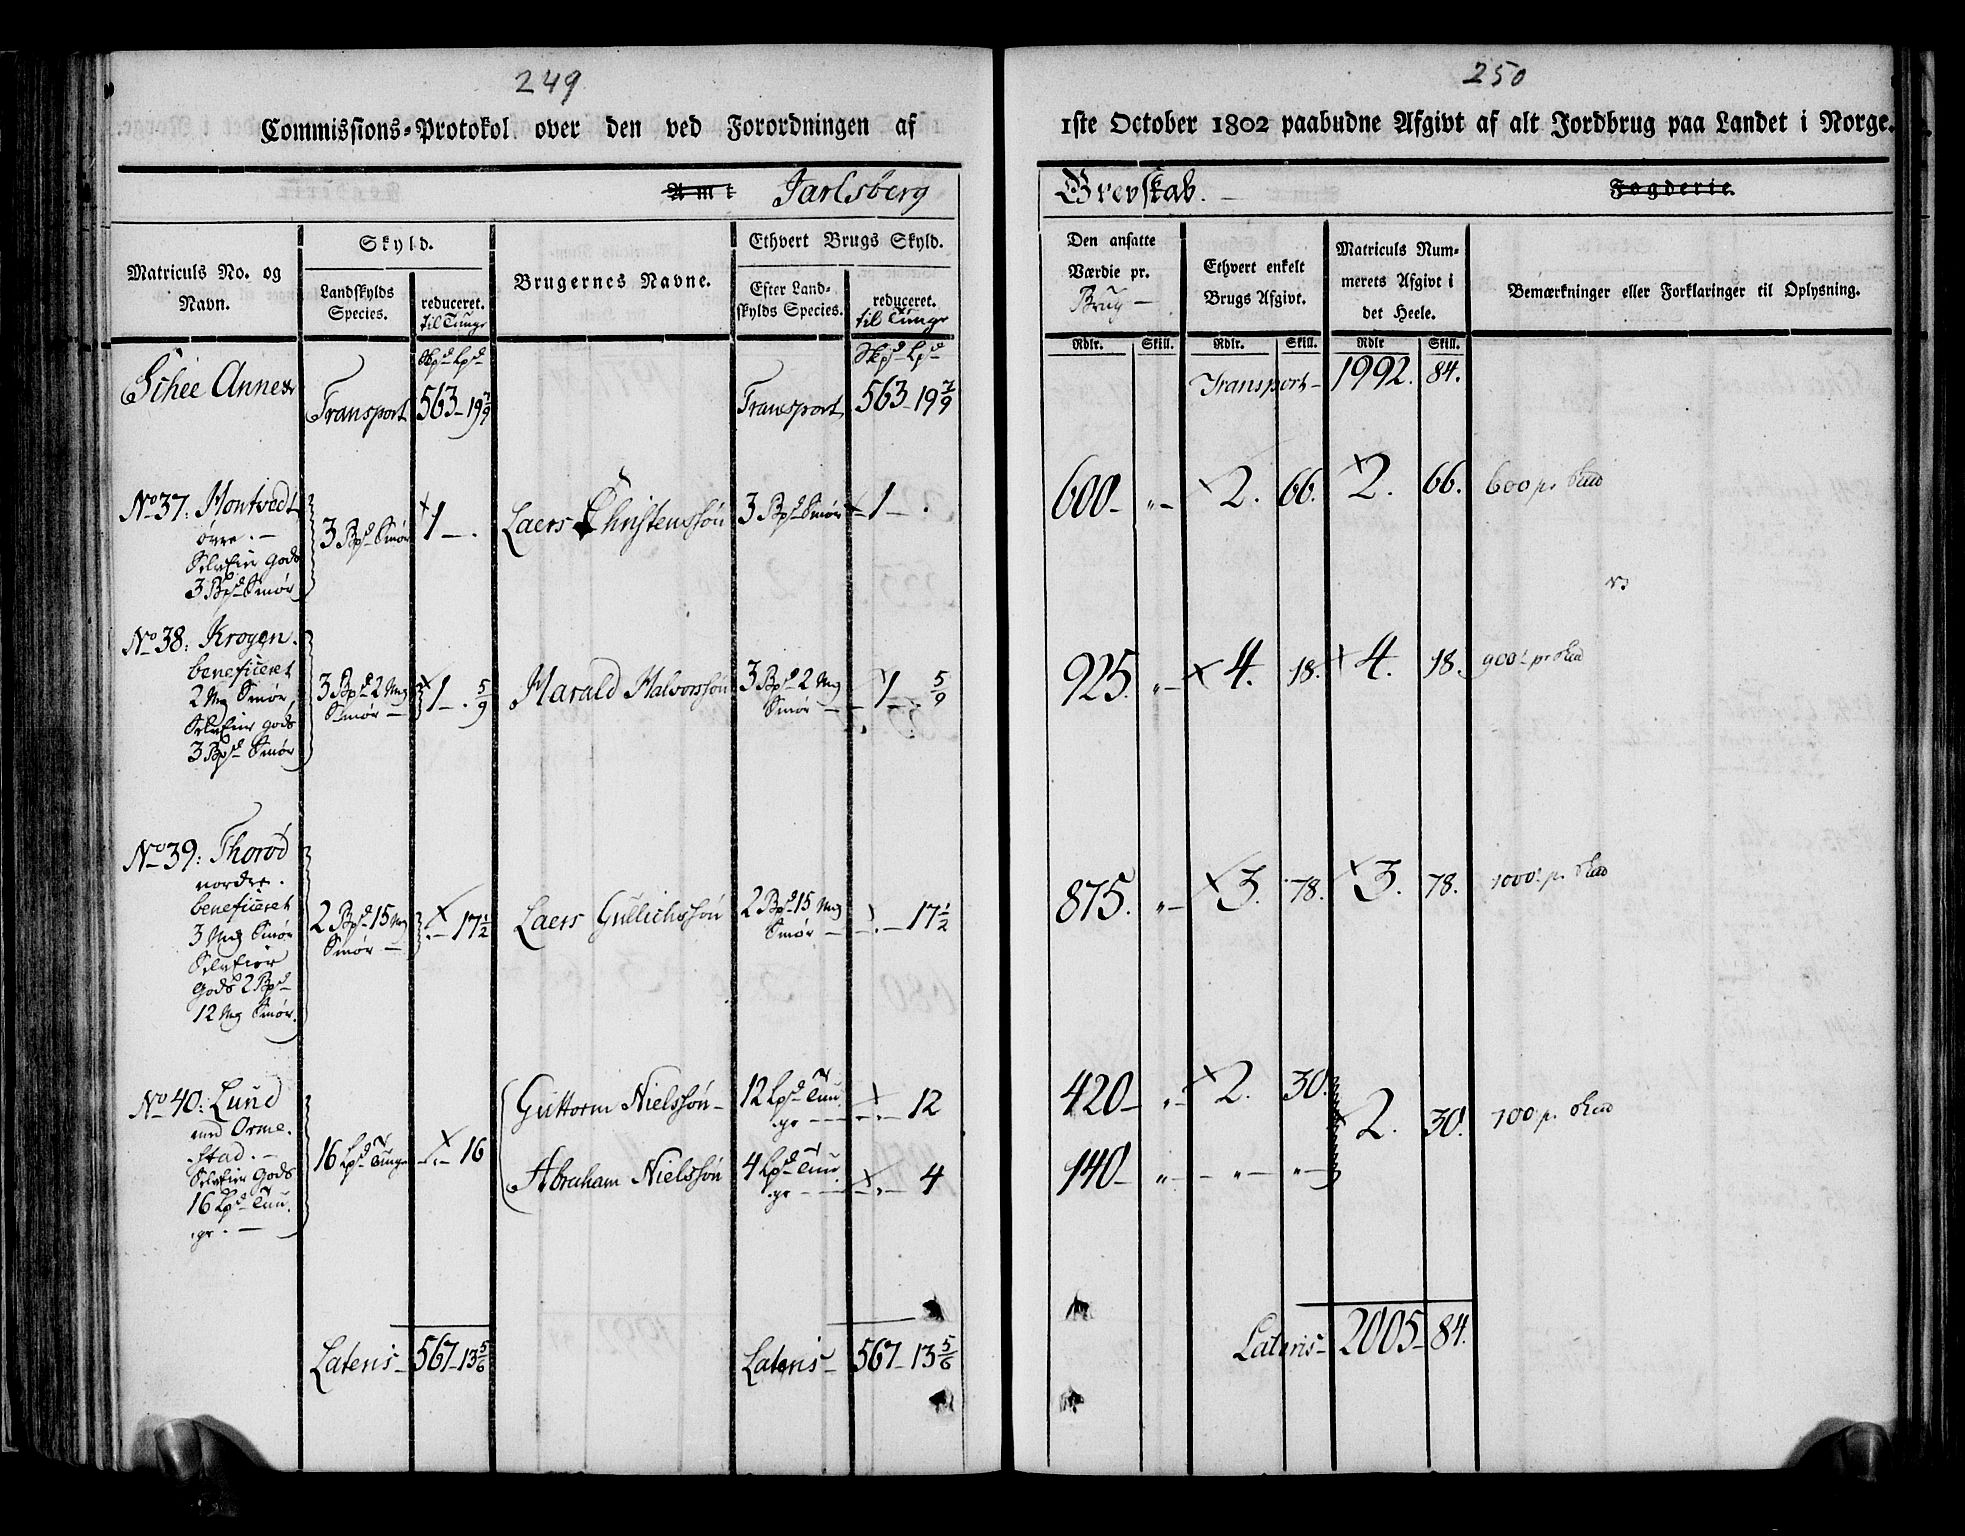 249
Commissions-Protokol over den ved Forordningen af
Amt Jarlsberg
Matriculs No. og Navn.
Skyld.
Landskylds Species.
reduceret. til Tunge
Brugernes Navne.
Ethvert Brugs Skyld.
Efter Land-
skylds Species.
reduceret. til Tunge
Schee Annex
Transport
Skpd Lpd
563 - 19 7/9
Transport
Skpd Lpd
563 - 19 7/9
No 37: Hontvedt
øvre. -
Selveier Gods
3 Bpd Smør
3 Bpd Smør
1 - .
Laers Christenssøn
3 Bpd Smør
1 - .
No 38: Krogen.
beneficeret
2 Mg Smør,
Selveier Gods
3 Bpd Smør
3 Bpd 2 Mg
Smør -
1 - . 5/9
Harald Halvorssøn
3 Bpd 2 Mg
Smør -
1 - . 5/9
No 39: Thorød
nordre.
beneficeret
3 Mg Smør
Selveier
Gods 2 Bpd
12 Mg Smør.
2 Bpd 15 Mg
Smør -
. - 17 1/2
Laers Gullichssøn
2 Bpd 15 Mg
Smør -
. - 17 1/2
No 40: Lund
med Orme-
stad. -
Selveier Gods
16 Lpd Tun-
ge. -
16 Lpd Tunge
. - 16
Guttorm Nielssøn -
12 Lpd Tun-
ge -
. - 12
Abraham Nielssøn
4 Lpd Tun-
ge -
. - 4
Lateris -
567 - 13 5/6
Lateris -
567 - 13 5/6
250
1ste October 1802 paabudne Afgivt af alt Jordbrug paa Landet i Norge.
Grevskab. - Fogderie.
Den ansatte
Værdie pr.
Brug -
Ethvert enkelt
Brugs Afgivt.
Matriculs Num-
merets Afgivt i
det Heele.
Bemærkninger eller Forklaringer til Oplysning.
Rdlr. Skill. Rdlr. Skill. Rdlr Skill.
Transport - 1992. 84.
600 - „ - 2. 66. 2. 66. 600 pr
925. „ - 4. 18. 4. 18. 900 pr
875. „ - 3. 78. 3. 78. 1000 pr
420 - „ - 2. 30. 2. 30. 700 pr
140 - „ - „ - „ -
Lateris - 2005 - 84.